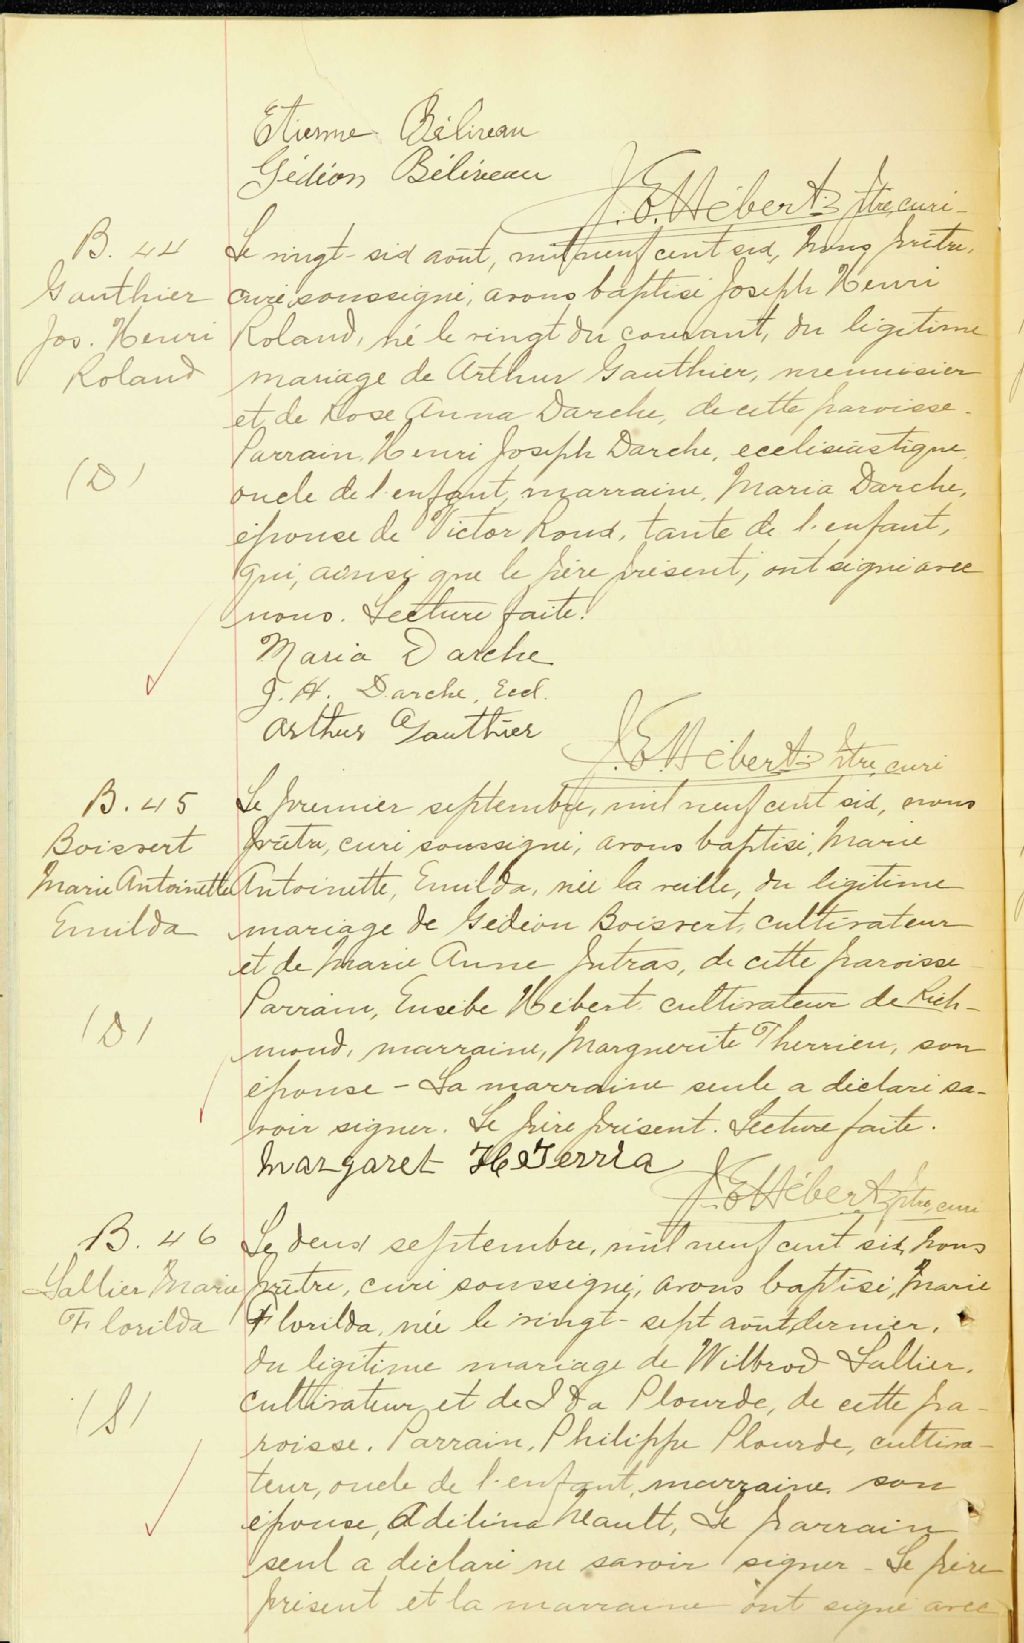 Etienne Béliveau
Gédéon Béliveau
J. E. Hébert Ptre, curé
B. 44
Gauthier
Jos. Henri
Roland
(D)
Le vingt-six août, mil neuf cent six, Nous prêtre,
curé soussigné, avons baptisé Joseph Henri
Roland, né le vingt du courant, du légitime
mariage de Arthur Gauthier, menuisier
et de Rose Anna Darche, de cette paroisse.
Parrain, Henri Joseph Darche, ecclésiastique,
oncle de l'enfant, marraine, Maria Darche,
épouse de Victor Roux, tante de l'enfant,
qui, ainsi que le père présent, ont signé avec
nous. Lecture faite.
Maria Darche
J. H. Darche, Eccl.
Arthur Gauthier
J. E. Hébert Ptre, curé
B. 45
Boisvert
Marie Antoinette
Emilda
(D)
Le premier septembre, mil neuf cent six, nous
prêtre, curé soussigné, avons baptisé, Marie
Antoinette, Emilda, née la veille, du légitime
mariage de Gédéon Boisvert, cultivateur
et de Marie Anne Jutras, de cette paroisse
Parrain, Eusèbe Hébert cultivateur de Rich-
mond, marraine, Marguerite Therrien, son
épouse - La marraine seule a déclaré sa-
voir signer. Le père présent. Lecture faite.
Margaret Terria
J. E. Hébert Ptre, curé
B. 46
Lallier Marie
Florilda
(S)
Le deux septembre, mil neuf cent six, Nous
prêtre, curé soussigné, avons baptisé, Marie
Florilda, née le vingt-sept août dernier,
du légitime mariage de Wilbrod Lallier,
cultivateur et de Ida Plourde, de cette pa-
roisse. Parrain, Philippe Plourde, cultiva-
teur, oncle de l'enfant, marraine, son
épouse, Adélina Neault, Le parrain
seul a déclaré ne savoir signer - Le père
présent et la marraine ont signé avec